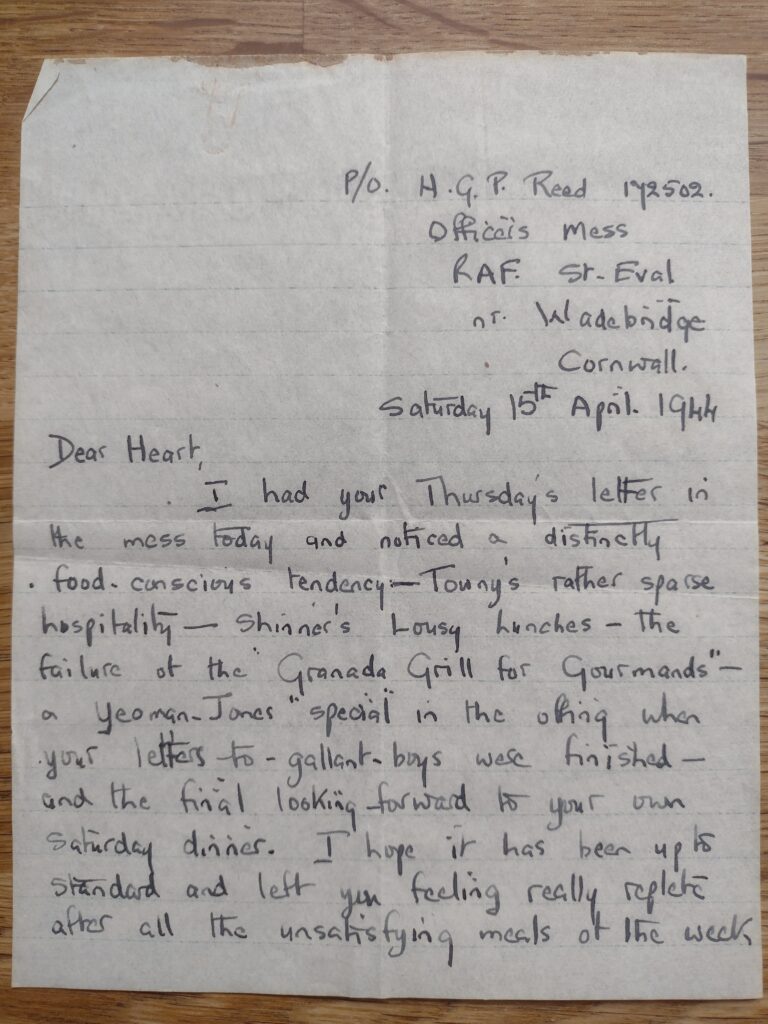 P/O. H.G.P. Reed 172502.
Officer's Mess
RAF. St-Eval
nr. Wadebridge
Cornwall.
Saturday 15th April. 1944
Dear Heart,
I had your Thursday's letter in
the mess today and noticed a distinctly
food-conscious tendency — Tounny's rather sparse
hospitality — Shinner's Lousy Lunches — the
failure of the "Granada Grill for Gourmands" —
a Yeoman-Jones "special" in the offing when
your letters-to-gallant-boys were finished —
and the final looking-forward to your own
Saturday dinner. I hope it has been up to
standard and left you feeling really replete
after all the unsatisfying meals of the week,